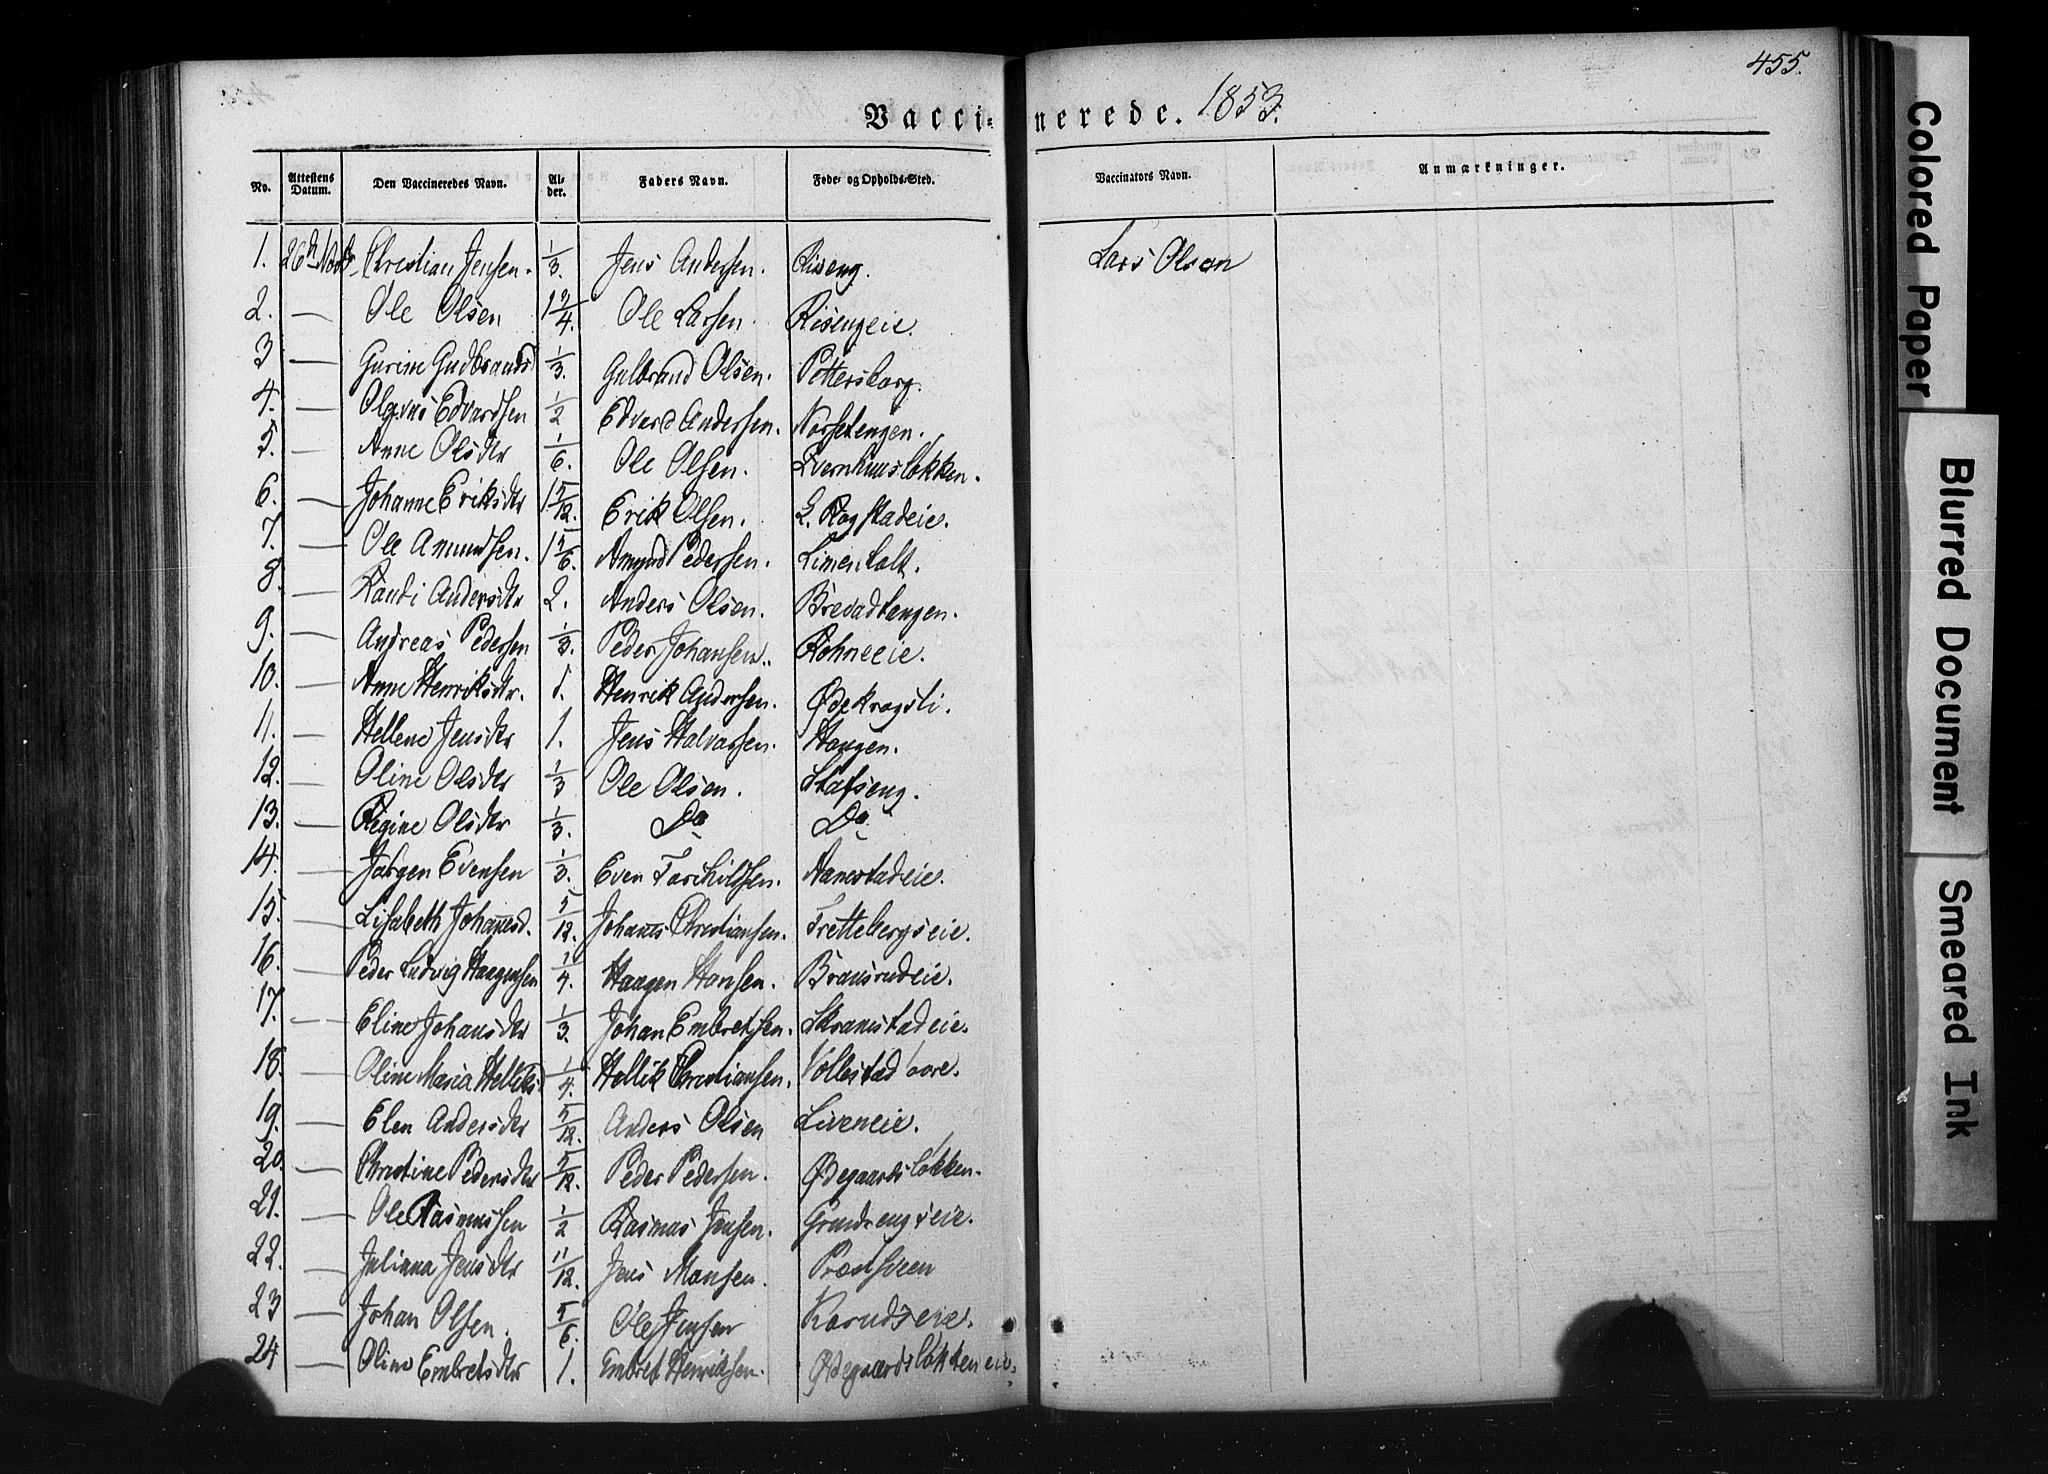 455.
Vaccinerede. 1853.
No. Attestens Datum. Den Vaccineredes Navn. Alder. Faders Navn. Føde- og Opholds-Sted. Vaccinators Navn. Anmærkninger.
1. 26d Novbr Christian Jensen. 1/3. Jens Andersen. Riseng. Lars Olsen
2. — Ole Olsen 1 3/4. Ole Larsen. Risengeie.
3 — Gurine Gudbrands 1/3. Gulbrand Olsen. Pettersborg.
4. — Edvardsen 1/2 Edvard Andersen. Norsetengen.
5. — Anne Olsdtr 1/6. Ole Olsen. Qvernhuusløkken.
6. — Johanne Eriksdtr 1 5/12. Erik Olsen. L. Rogstadeie.
7. — Ole Amundsen. 1 5/6. Amund Pedersen. Limenholt.
8. — Randi Andersdtr 2. Anders Olsen. Brevadhaugen.
9. — Andreas Pedersen 1/3. Peder Johansen. Rohneeie.
10. — Anne Henriksdtr. 1. Henrik Andersen. Ødekragsli.
11. — Hellene Jensdtr 1. Jens Halvorsen. Haugen.
12. — Oline Olsdtr 1/3 Ole Olsen. Stafseng.
13. — Regine Olsdtr 1/3. Do Do
14. — Jørgen Evensen 1/3. Even Torchildsen. Aanestadeie.
15. — Lisabeth Johannesd. 5/12. Johannes Christiansen. Frettebergseie.
16. — Peder Ludvig Haagensen 1/4. Haagen Hansen. Bransrudeie.
17. — Eline Johansdtr 1/3. Johan Embretsen. Skramstadeie.
18. — Oline Maria Helliks 1/4. Hellik Christiansen. Vollestad
19. — Elen Andersdtr 5/12. Anders Olsen Liveneie.
20. — Christine Pedersdtr 5/12. Peder Pedersen. Ødegaardsløkken.
21. — Ole Rasmussen 1/2 Rasmus Jensen. Grundsengseie.
22. — Juliana Jensdtr 11/12. Jens Monsen. Præstsveen
23 — Johan Olsen. 5/6. Ole Jensen Korudseie.
24 — Oline Embretsdtr 1. Embret Henriksen. Ødegaardsløkkeneie.
Colored Paper
Blurred Document
Smeared Ink